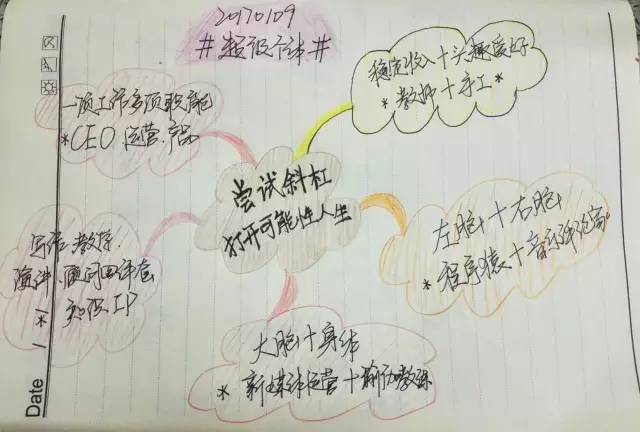 20170109
#超级个体#
稳定收入+兴趣爱好
*教师+手工
一项工作多项职能
*CEO.运营.产品
尝试斜杠
打开可能性人生
左脑+右脑
*程序猿+音乐评论家
写作.教学.
演讲.顾问四评套
*知识IP
大脑+身体
*新媒体运营+瑜伽教练
Date / /